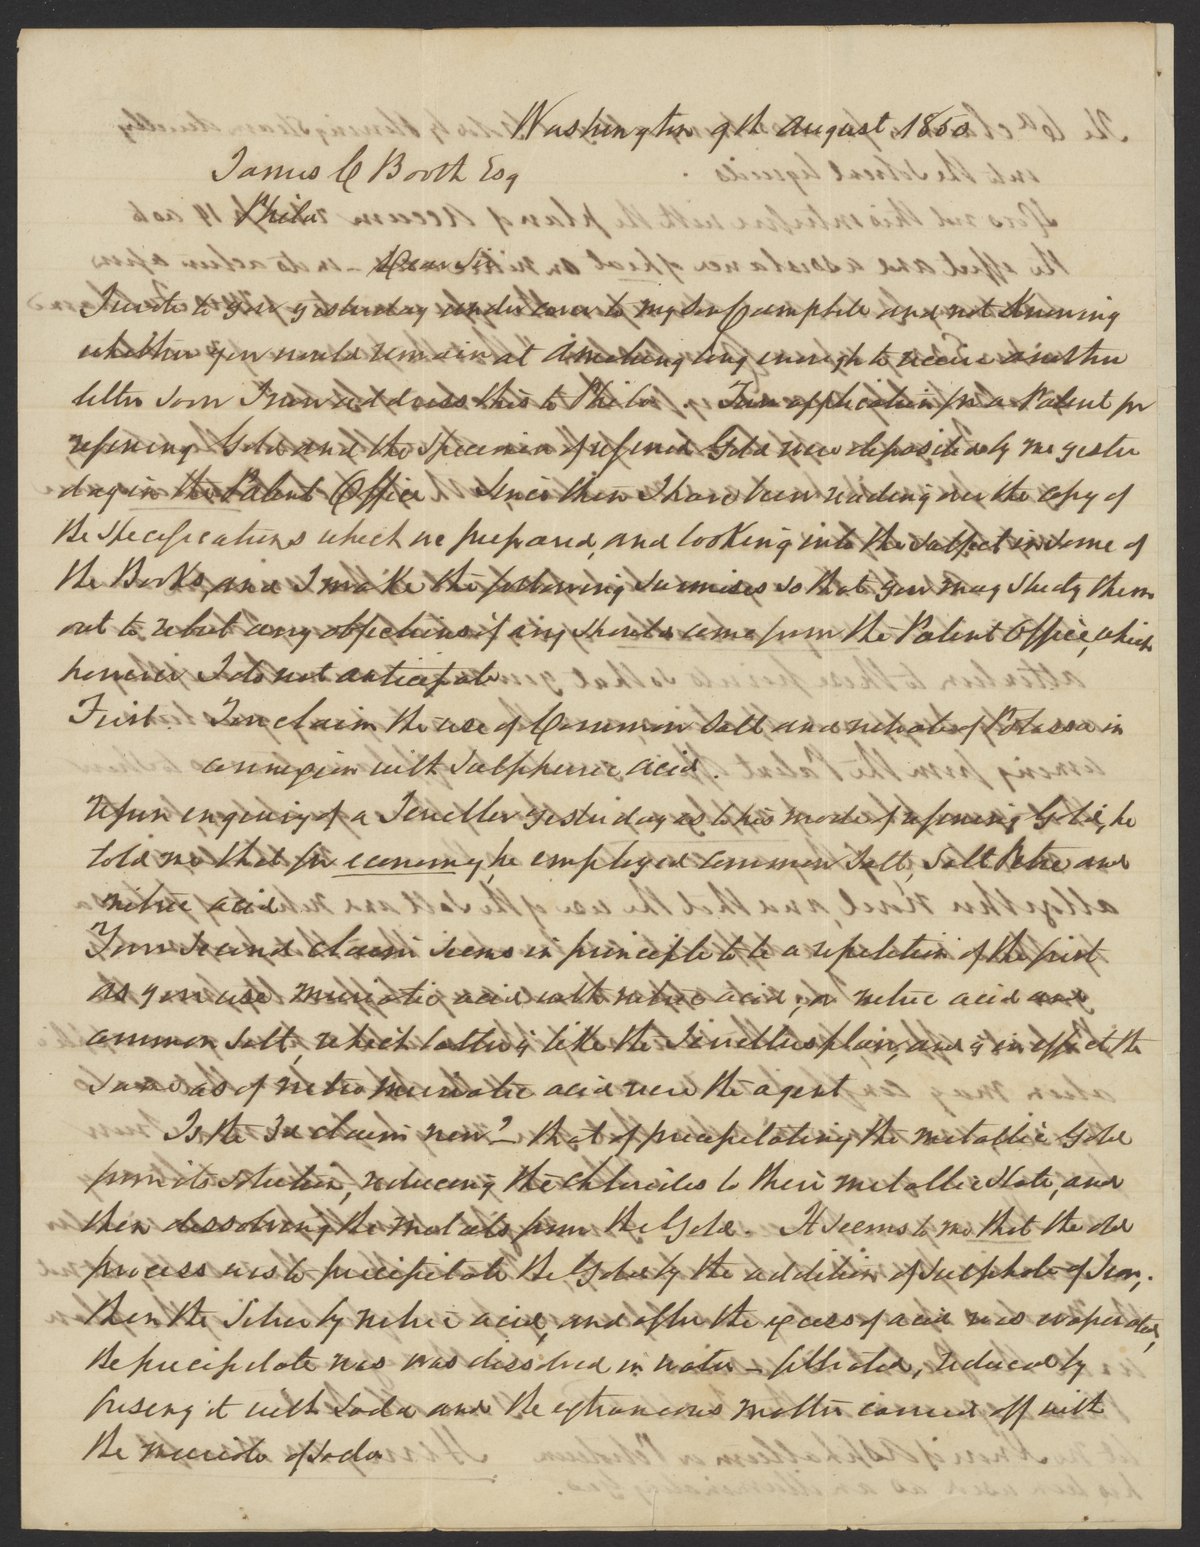 Washington 9th August 1850
James C Booth Esq
Phila
Dear Sir
I wrote to you yesterday under cover to my son Campbell and not Knowing
whether you would remain at long enough to receive another
letter from I now address this to Phila. Your application for a Patent for
refining Gold and the specimen of refined Gold were deposited by me yester
day in the Patent Office Since then I have been reading over the copy of
the specifications which we prepared, and looking into the subject in some of
the Books, and I make the following surmises so that you may study them
out to rebut any objections if any should come from the Patent Office, which
however I do not anticipate
First. You claim the use of Common Salt and nitrate of Potassa in
connexion with Sulphuric acid.
Upon enquiry of a Jeweller yesterday as to his mode of refining Gold, he
told me that for economy, he employed common Salt, Salt Petre and
nitric acid
Your second claim seems in principle to be a repetition of the first
as you use muriatic acid with nitric acid, or nitric acid and
common Salt, which latter is like the Jewellers plan, and is in effect the
same as if nitro muriatic acid were the agent
Is the 3d claim new? that of precipitating the metallic Gold
from its solution, reducing the chlorides to their metallic state, and
then dissolving the metals from the Gold. It seems to me that the old
process was to precipitate the Gold by the addition of sulphate of Iron;
then the Silver by nitric acid, and after the excess of acid was evaporated,
the precipitate was was dissolved in water – filtrated, reduced by
fusing it with Soda and the extraneous matter carried off with
the muriate of soda